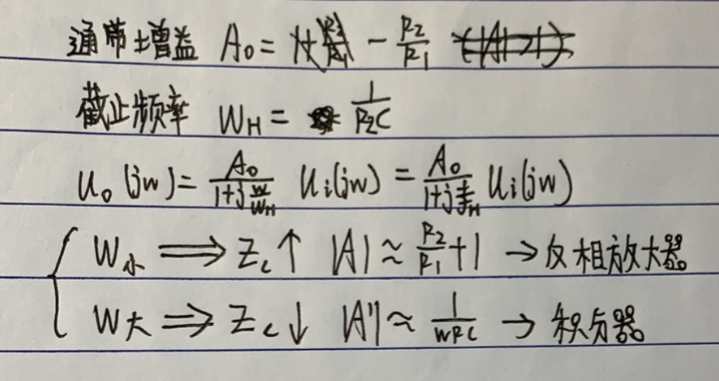 通带增益 A₀ = - R₂/R₁
截止频率 W_H = 1/(R₂C)
U₀(jw) = A₀/(1+j w/W_H) Uᵢ(jw) = A₀/(1+j f/f_H) Uᵢ(jw)
W小 ⟹ Z_c↑ |A| ≈ R₂/R₁ + 1 → 反相放大器
W大 ⟹ Z_c↓ |A'| ≈ 1/(WRC) → 积分器